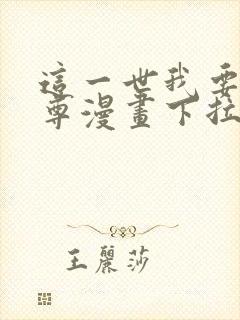 這一世我要
尊漫畫下拉
王麗莎